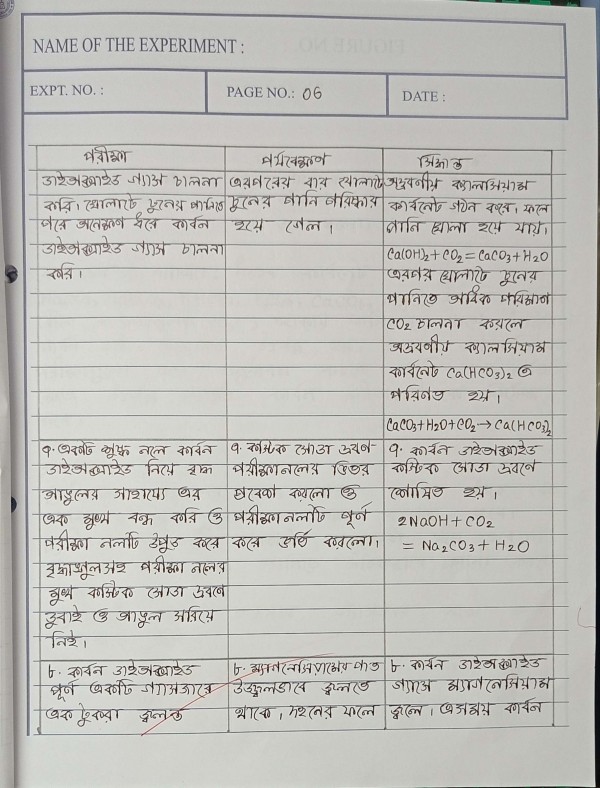 NAME OF THE EXPERIMENT :
EXPT. NO. :
PAGE NO.: 06
DATE :
পরীক্ষা
পর্যবেক্ষণ
সিদ্ধান্ত
ডাইঅক্সাইড গ্যাস চালনা
করি। ঘোলাটে চুনের পানিতে
পরে অনেক্ষণ ধরে কার্বন
ডাইঅক্সাইড গ্যাস চালনা
করি।
এরপরের বার ঘোলাটে
চুনের পানি পরিষ্কার
হয়ে গেল।
অদ্রবণীয় ক্যালসিয়াম
কার্বনেট গঠন করে। ফলে
পানি ঘোলা হয়ে যায়।
Ca(OH)₂ + CO₂ = CaCO₃ + H₂O
এরপর ঘোলাটে চুনের
পানিতে অধিক পরিমাণ
CO₂ চালনা করলে
অদ্রবণীয় ক্যালসিয়াম
কার্বনেট Ca(HCO₃)₂ এ
পরিণত হয়।
CaCO₃ + H₂O + CO₂ → Ca(HCO₃)₂
৭. একটি শুষ্ক নলে কার্বন
ডাইঅক্সাইড নিয়ে বৃদ্ধ
আঙুলের সাহায্যে এর
এক মুখ বন্ধ করি ও
পরীক্ষা নলটি উপুড় করে
বৃদ্ধাঙ্গুলসহ পরীক্ষা নলের
মুখ কস্টিক সোডা দ্রবণে
ডুবাই ও আঙুল সরিয়ে
নিই।
৭. কস্টিক সোডা দ্রবণ
পরীক্ষানলের ভিতর
প্রবেশ করলো ও
পরীক্ষানলটি পূর্ণ
করে ভর্তি করলো।
৭. কার্বন ডাইঅক্সাইড
কস্টিক সোডা দ্রবণে
শোষিত হয়।
2NaOH + CO₂
= Na₂CO₃ + H₂O
৮. কার্বন ডাইঅক্সাইড
পূর্ণ একটি গ্যাসজারে
এক টুকরা জ্বলন্ত
৮. ম্যাগনেসিয়ামের পাত
উজ্জ্বলভাবে জ্বলতে
থাকে। দহনের ফলে
৮. কার্বন ডাইঅক্সাইড
গ্যাসে ম্যাগনেসিয়াম
জ্বলে। এসময় কার্বন